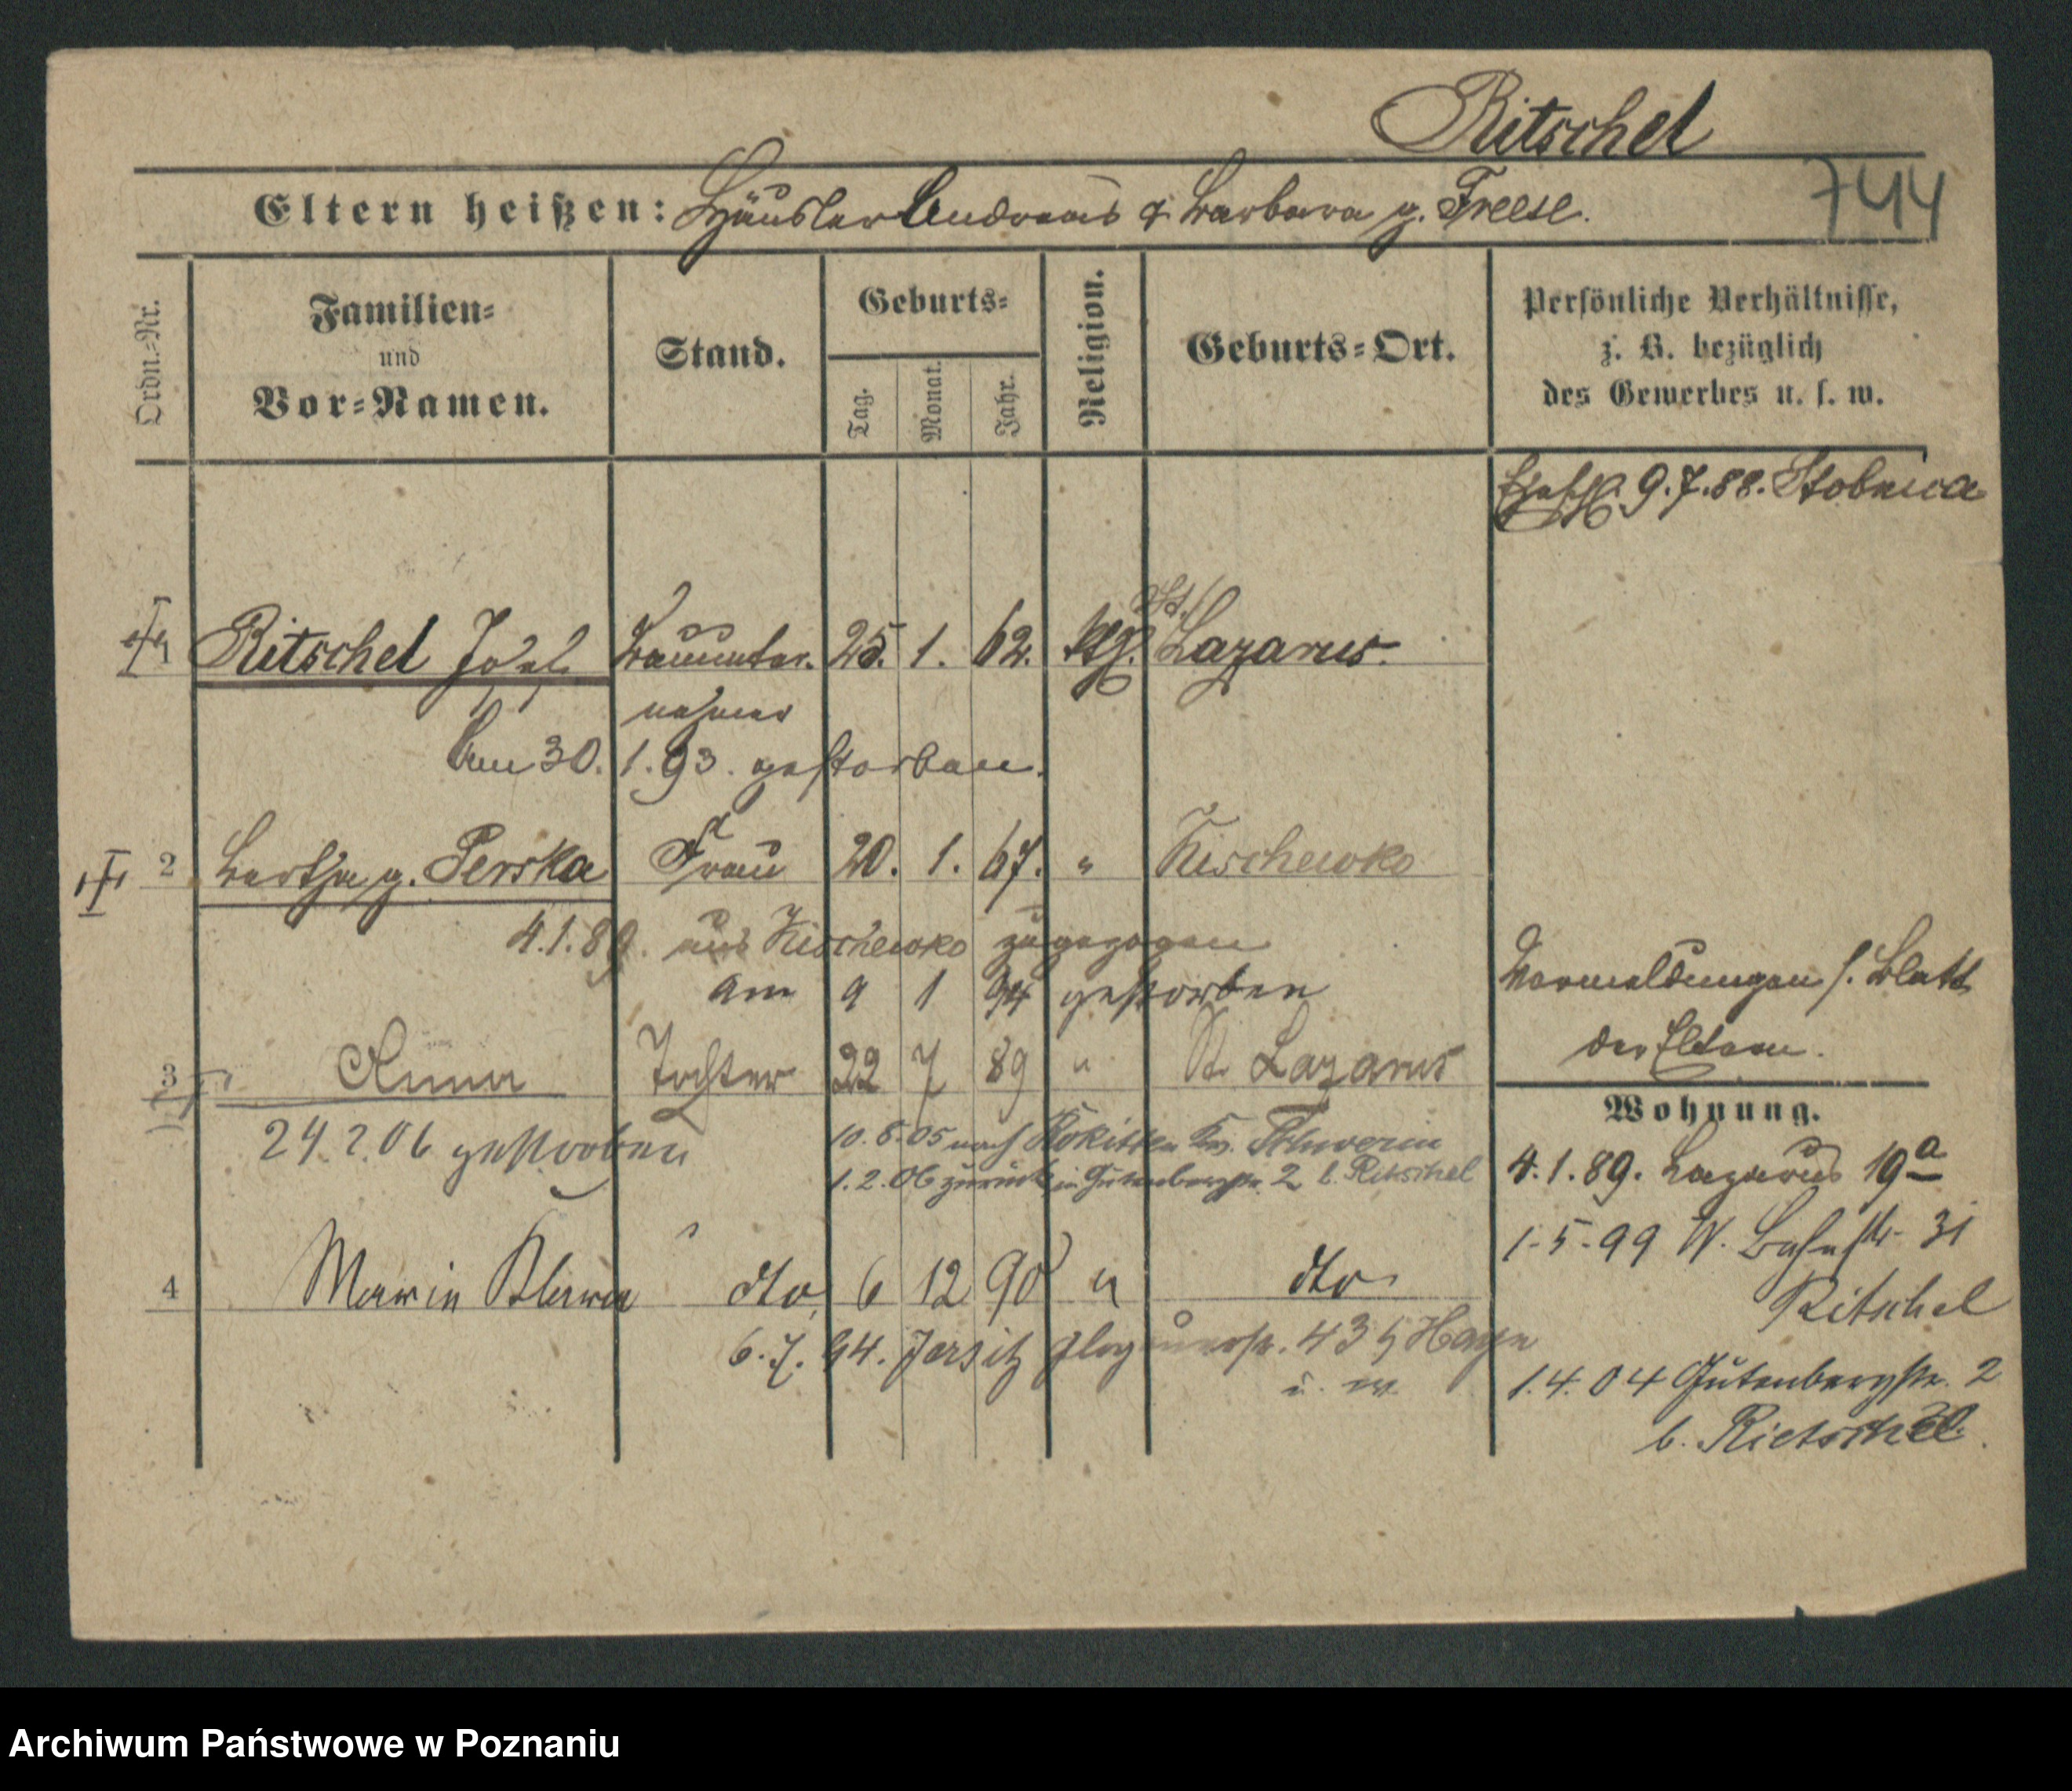 Ritschel
744
Eltern heißen: Häusler Andreas & Barbara g. Freese.
Ordn.-Nr.
Familien- und Vor-Namen.
Stand.
Geburts-
Tag.
Monat.
Jahr.
Religion.
Geburts-Ort.
Persönliche Verhältnisse,
z. B. bezüglich
des Gewerbes u. s. w.
9.7.88. Stobnica
1 Ritschel Josef Bauunter- 25. 1. 62. ktg. St. Lazarus.
nehmer
Am 30. 1. 93. gestorben.
2 Bertha g. Perska Frau 20. 1. 67. " Kischewko
4.1.89. aus Kischewko zugezogen
am 9 1 94 gestorben
Vormeldungen s. Blatt
der Eltern.
3 Anna Tochter 22 7 89 " St. Lazarus
24.2.06 gestorben
10.8.05 nach Rokitten Kr. Schwerin
1.2.06 zurück in Gutenbergstr. 2 b. Ritschel
Wohnung.
4.1.89. Lazarus 19a
1-5-99 W. Bahnstr. 31
Ritschel
4 Marie Klara dto 6 12 90 " dto
6.7.94. Jersitz Glogauerstr.
1.4.04 Gutenbergstr. 2
b. Rietschel.
Archiwum Państwowe w Poznaniu